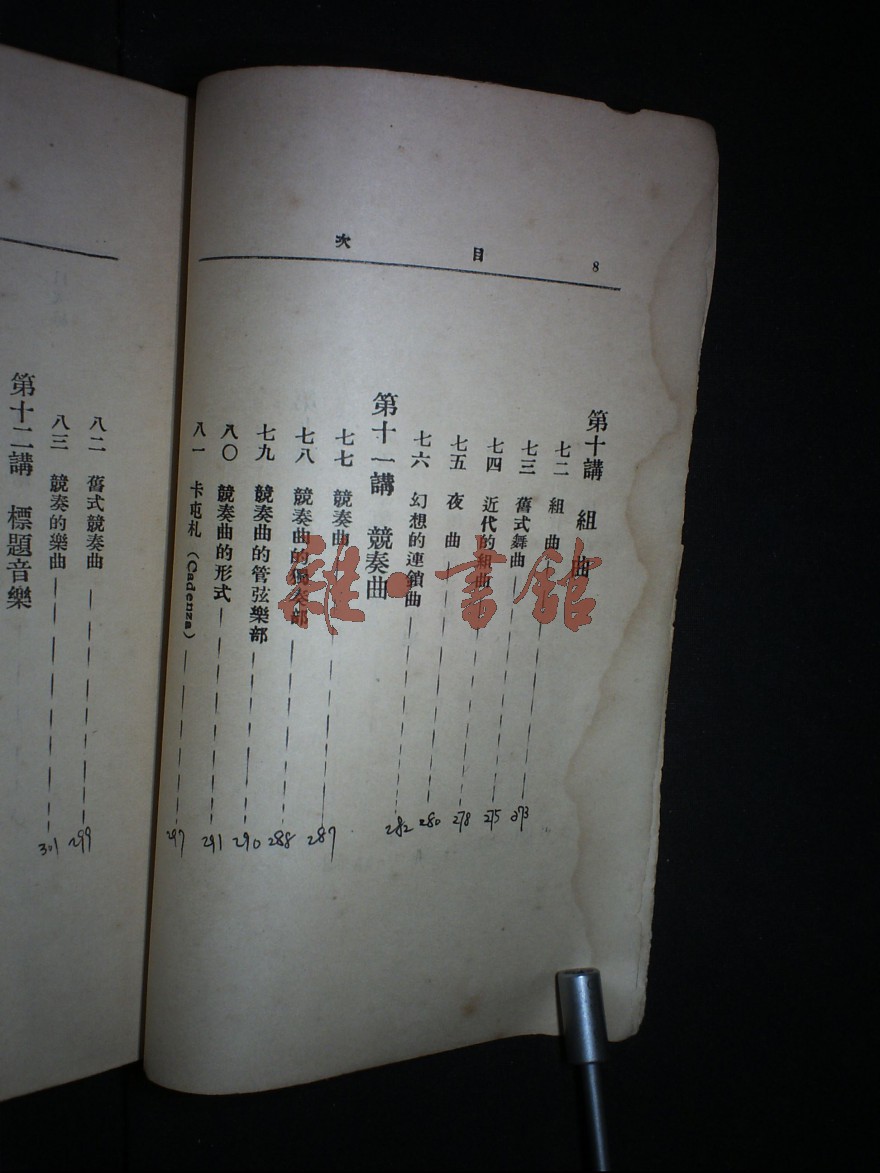 8 目次
第十講 組曲
七二 組曲 273
七三 舊式舞曲 275
七四 近代的組曲 278
七五 夜曲 280
七六 幻想的連鎖曲 282
第十一講 競奏曲
七七 競奏曲 287
七八 競奏曲的獨奏部 288
七九 競奏曲的管弦樂部 290
八〇 競奏曲的形式 291
八一 卡屯札 (Cadenza) 297
八二 舊式競奏曲 299
八三 競奏的樂曲 301
第十二講 標題音樂
雜·書館